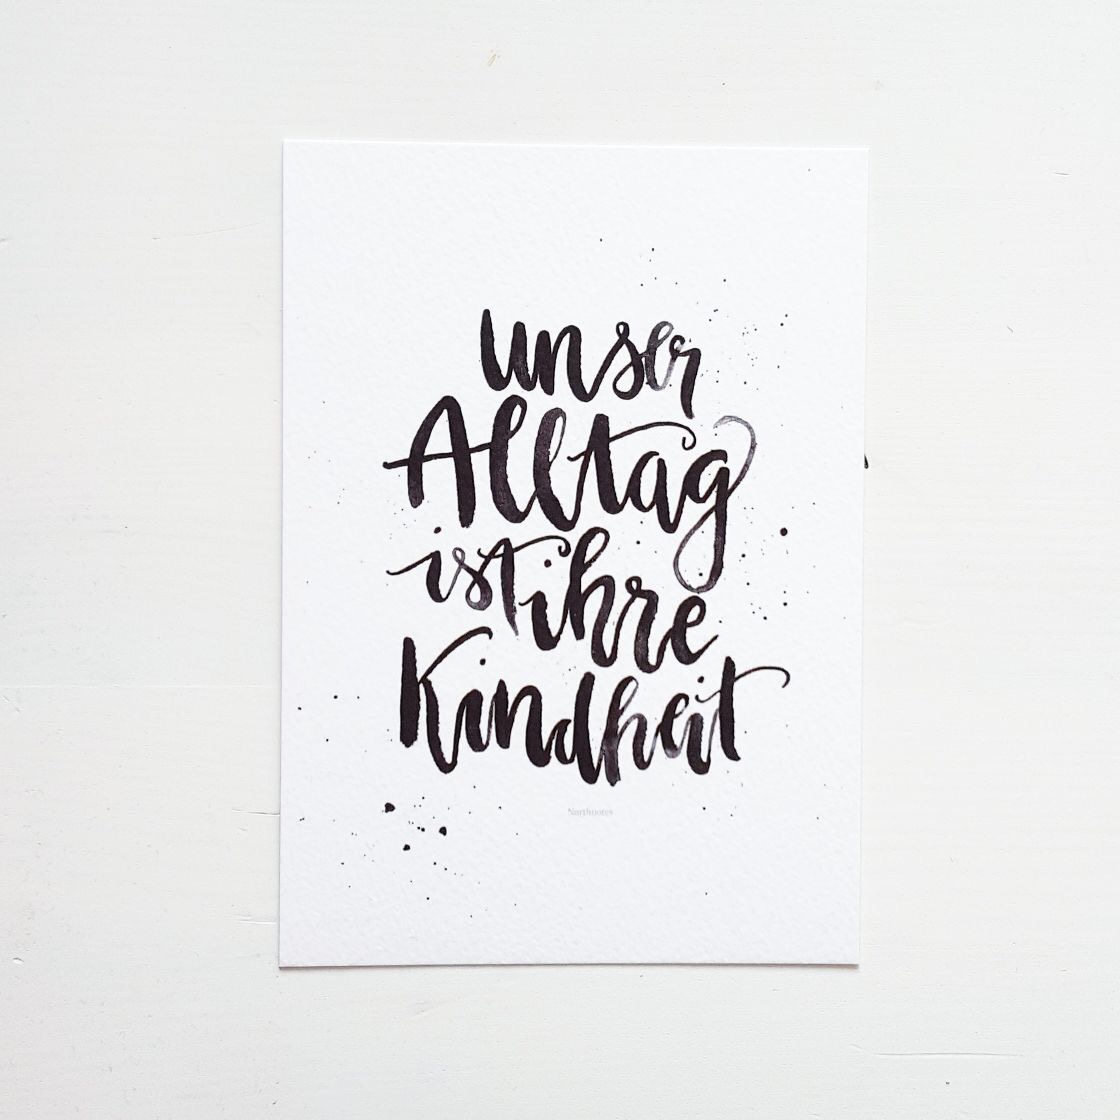 unser
Alltag
ist ihre
Kindheit
Northnotes